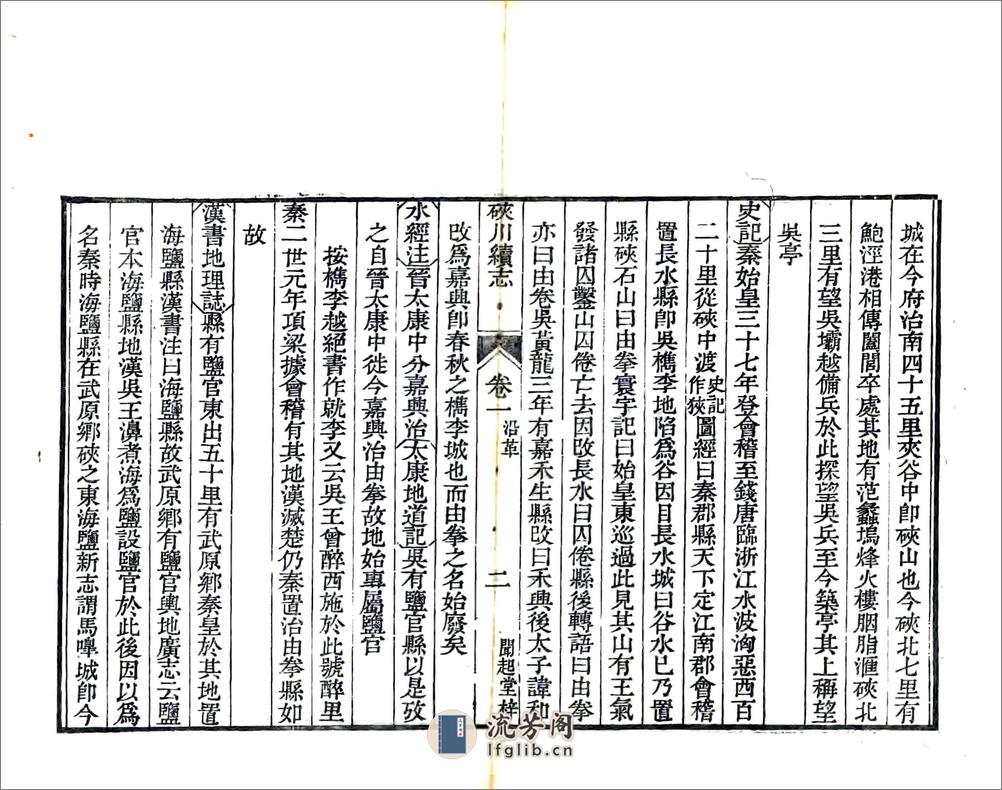 城在今府治南四十五里夾谷中卽硤山也今硤北七里有
鮑涇港相傳闔閭卒處其地有范蠡塢烽火樓胭脂滙硤北
三里有望吳壩越備兵於此探望吳兵至今築亭其上稱望
吳亭
史記秦始皇三十七年登會稽至錢唐臨浙江水波洶惡西百
二十里從硤中渡史記作狹圖經曰秦郡縣天下定江南郡會稽
置長水縣卽吳檇李地陷爲谷因目長水城曰谷水已乃置
縣硤石山曰由拳寰宇記曰始皇東巡過此見其山有王氣
發諸囚鑿山囚倦亡去因改長水曰囚倦縣後轉語曰由拳
亦曰由卷吳黃龍三年有嘉禾生縣改曰禾興後太子諱和
硤川續志 卷一 沿革 二 聞起堂梓
改爲嘉興卽春秋之檇李城也而由拳之名始廢矣
水經注晉太康中分嘉興治太康地道記吳有鹽官縣以是攷
之自晉太康中徙今嘉興治由拳故地始專屬鹽官
按檇李越絕書作就李又云吳王曾醉西施於此號醉里
秦二世元年項梁據會稽有其地漢滅楚仍秦置治由拳縣如
故
漢書地理誌縣有鹽官東出五十里有武原鄉秦皇於其地置
海鹽縣漢書注曰海鹽縣故武原鄉有鹽官輿地廣志云鹽
官本海鹽縣地漢吳王濞煮海爲鹽設鹽官於此後因以爲
名秦時海鹽縣在武原鄉硤之東海鹽新志謂馬嘷城卽今
流芳阁
lfglib.cn